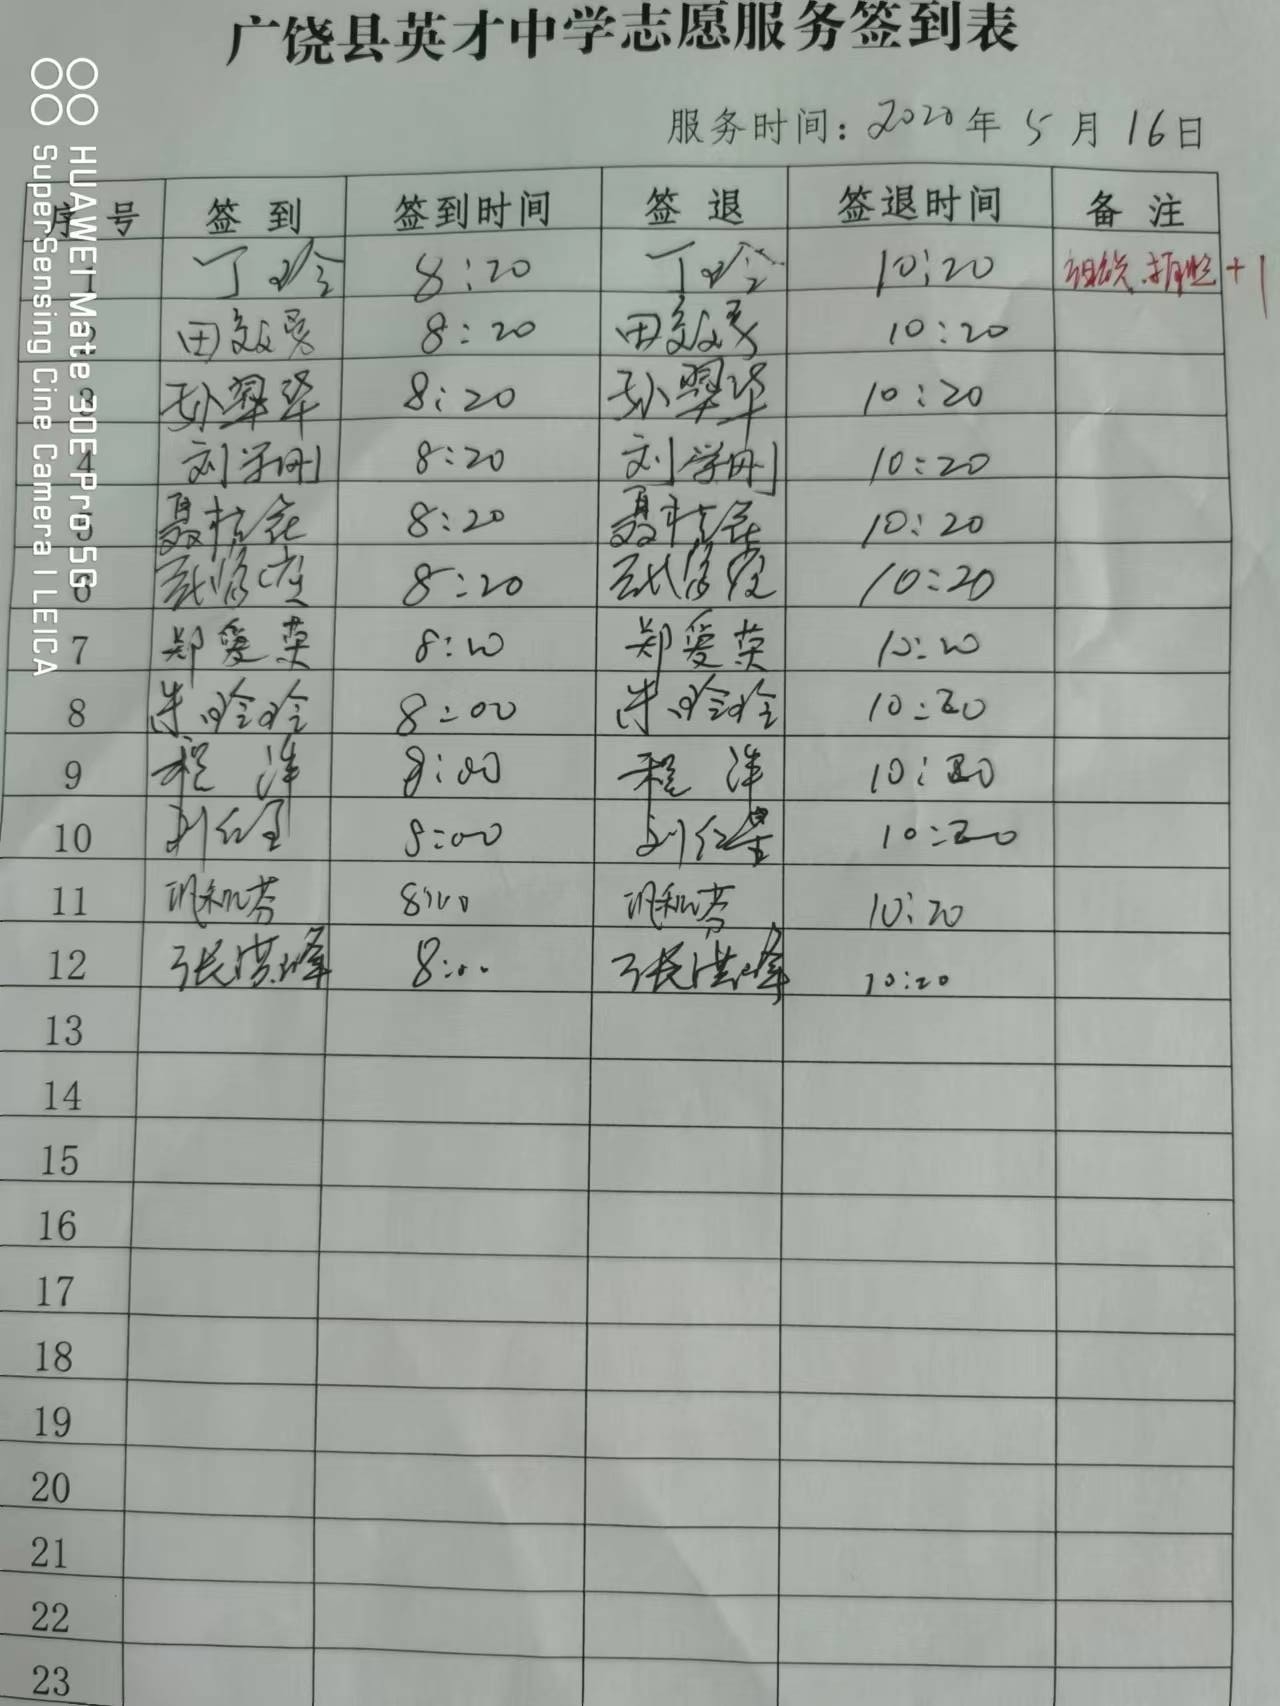 广饶县英才中学志愿服务签到表
服务时间：2020年5月16日
序号 签到 签到时间 签退 签退时间 备注
1 丁玲 8:20 丁玲 10:20 组织、拍照+1
2 田 8:20 田 10:20
3 孙翠华 8:20 孙翠华 10:20
4 刘学刚 8:20 刘学刚 10:20
5 聂桂花 8:20 聂桂花 10:20
6 8:20 10:20
7 郑爱英 8:20 郑爱英 10:20
8 朱玲玲 8:00 朱玲玲 10:20
9 程洋 8:00 程洋 10:20
10 刘红星 8:00 刘红星 10:20
11 8:00 10:20
12 张洪峰 8:00 张洪峰 10:20
13
14
15
16
17
18
19
20
21
22
23
HUAWEI Mate 30E Pro 5G
SuperSensing Cine Camera | LEICA